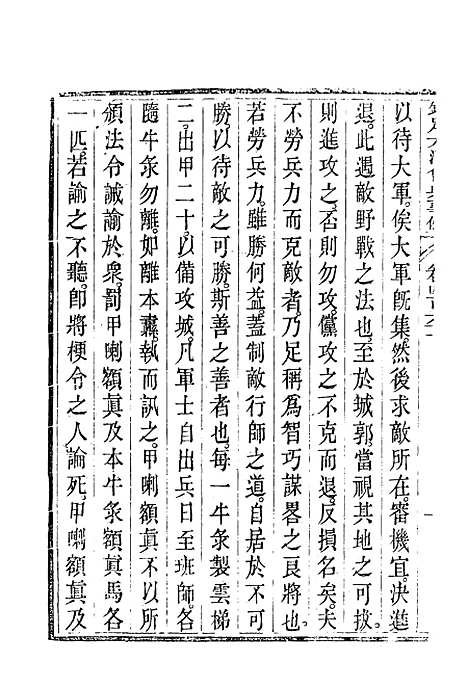 以待大軍。俟大軍既集。然後求敵所在。審機宜。決進
退。此遇敵野戰之法也。至於城郭。當視其地之可拔。
則進攻之。否則勿攻。儻攻之不克而退。反損名矣。夫
不勞兵力而克敵者。乃足稱爲智巧謀畧之良將也。
若勞兵力。雖勝何益。蓋制敵行師之道。自居於不可
勝。以待敵之可勝。斯善之善者也。每一牛彔製雲梯
二。出甲二十。以備攻城。凡軍士自出兵日至班師。各
隨牛彔勿離。如離本纛。執而訊之。甲喇額眞不以所
頒法令誡諭於衆。罰甲喇額眞及本牛彔額眞馬各
一匹。若諭之不聽。卽將梗令之人論死。甲喇額眞及